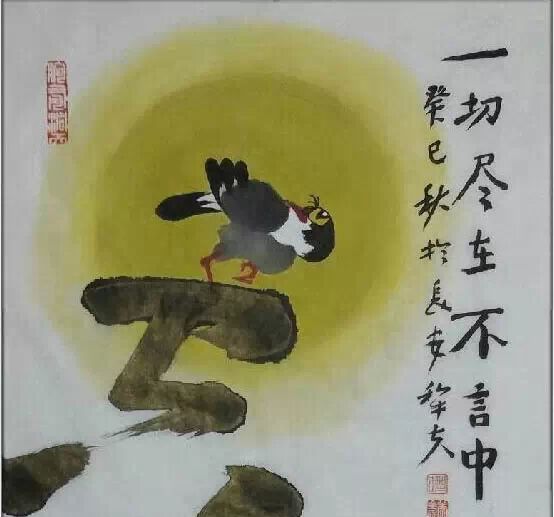 一切尽在不言中
癸巳秋於長安